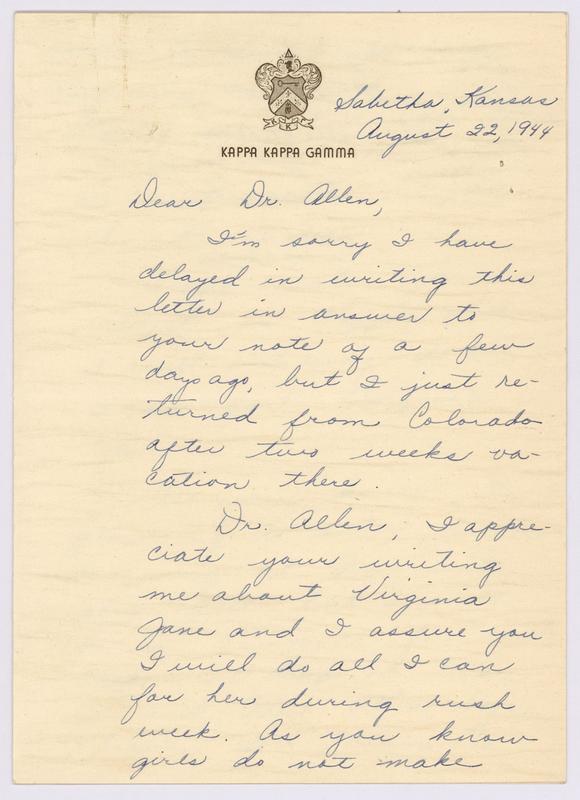 KKΓ
KAPPA KAPPA GAMMA
Sabetha, Kansas
August 22, 1944
Dear Dr. Allen,
I'm sorry I have
delayed in writing this
letter in answer to
your note of a few
days ago, but I just re-
turned from Colorado
after two weeks va-
cation there.
Dr. Allen, I appre-
ciate your writing
me about Virginia
Jane and I assure you
I will do all I can
for her during rush
week. As you know
girls do not make